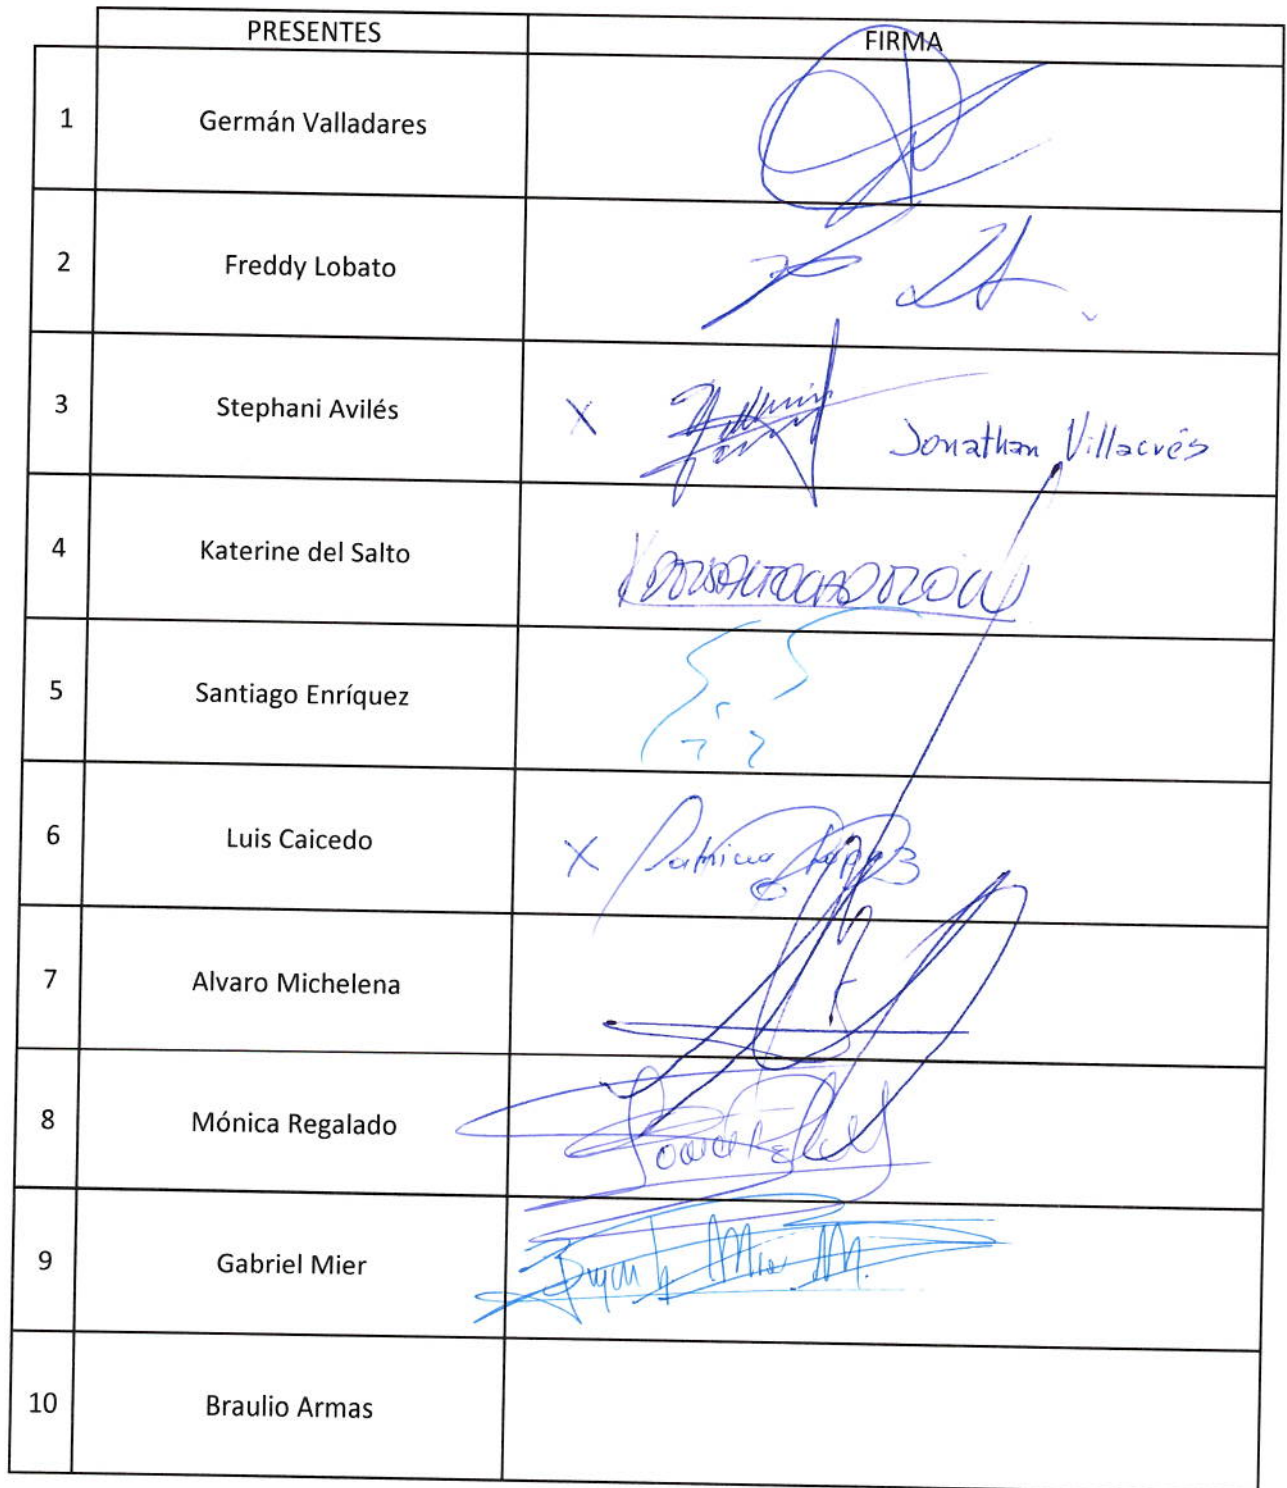 PRESENTES FIRMA
1 Germán Valladares
2 Freddy Lobato
3 Stephani Avilés X Jonathan Villacrés
4 Katerine del Salto
5 Santiago Enríquez
6 Luis Caicedo X Patricia
7 Alvaro Michelena
8 Mónica Regalado
9 Gabriel Mier
10 Braulio Armas